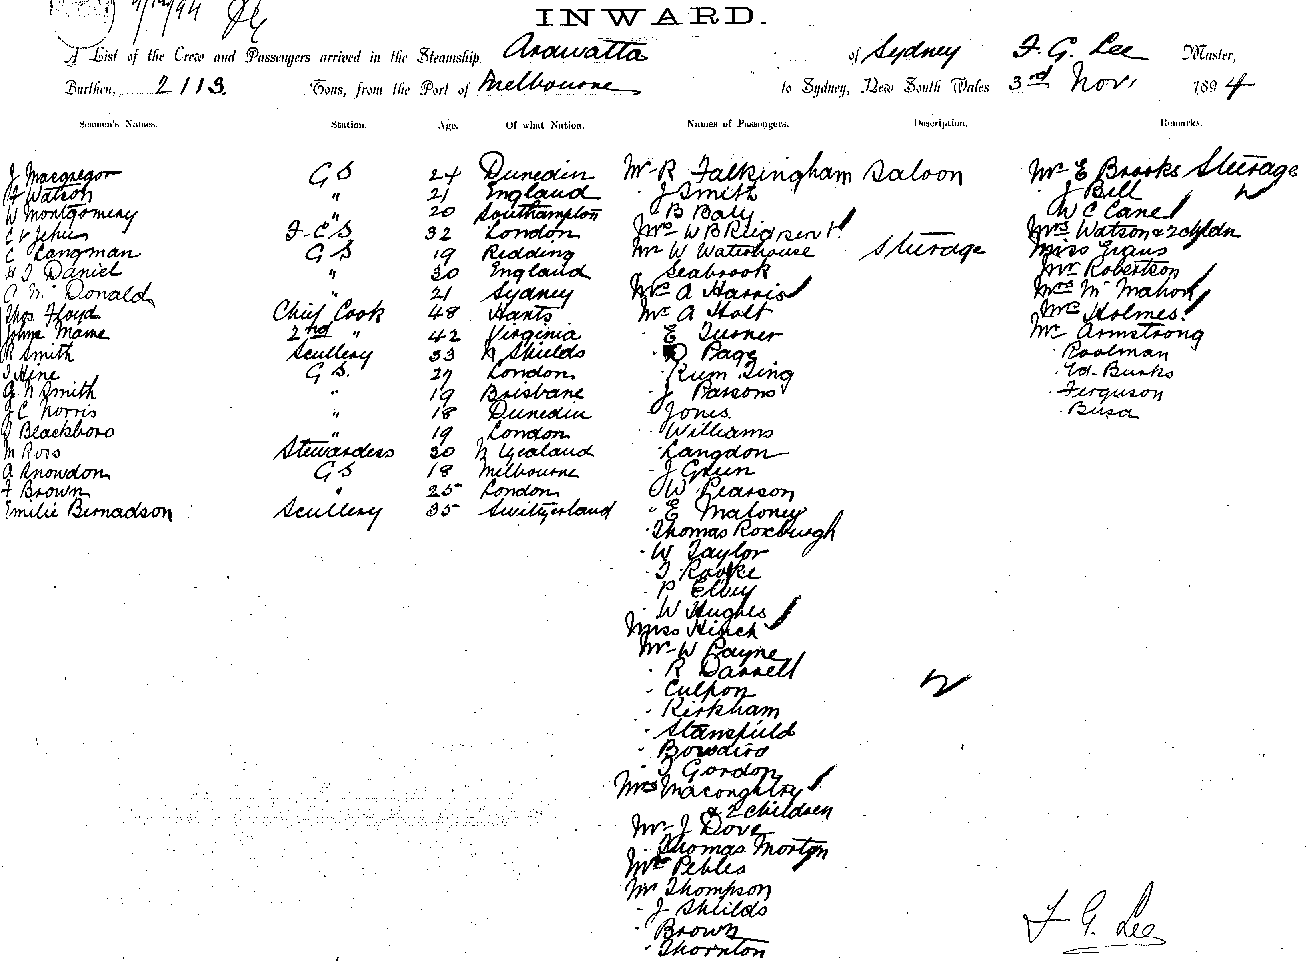 INWARD.
A List of the Crew and Passengers arrived in the Steamship Arawatta of Sydney F. G. Lee Master,
Burthen, 2113 Tons, from the Port of Melbourne to Sydney, New South Wales 3rd Nov. 1894
Seamen's Names. Station. Age. Of what Nation. Names of Passengers. Description. Remarks.
J Macgregor GS 24 Dunedin Mr R Falkingham Saloon Mr E Brooks Steerage
Watson " 21 England J Smith J Bell "
W Montgomery " 20 Southampton B Baly W C Cane
F.C.S 32 London Mrs W B Mrs Watson & 2 chldn
C Langman GS 19 Redding Mr W Waterhouse Steerage Miss
H J Daniel " 30 England Seabrook Mr Robertson
A McDonald " 21 Sydney Mrs A Harris Mrs McMahon
Thos Floyd Chief Cook 48 Hants Mr A Holt Mrs Holmes
Johns Mame 2nd " 42 Virginia E Turner Mr Armstrong
R Smith Scullery 33 N Shields Page Poolman
J Hine GS. 27 London Kum Ting Ed. Burks
G N Smith " 19 Brisbane J Parsons Ferguson
J C Norris " 18 Dunedin Jones Busa
Blackboro " 19 London Williams
M Ross Stewardess 30 N Zealand Langdon
A Snowdon GS 18 Melbourne J Green
F Brown " 25 London W Pearson
Emilie Bernadson Scullery 35 Switzerland E Maloney
Thomas Roxburgh
W Taylor
J Rooke
P Elvey
W Hughes
Miss Hinch
Mr W Payne
R Darrell
Culpon "
Kirkham
Stansfield
Bowdird
J Gordon
Mrs Maconghtry
& 2 children
Mr J Dove
Thomas Morton
Mr Pebles
Mr Thompson
J Shields
Brown
Thornton
F. G. Lee